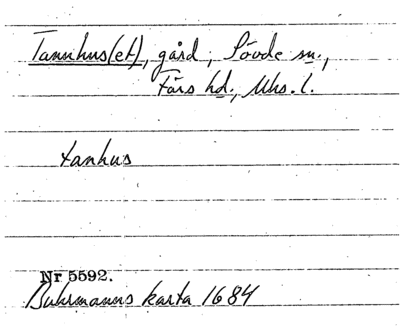 Tannhus(et), gård, Sövde sn.,
Färs hd., Mhs. l.
tanhus
Nr 5592.
Buhrmanns karta 1684